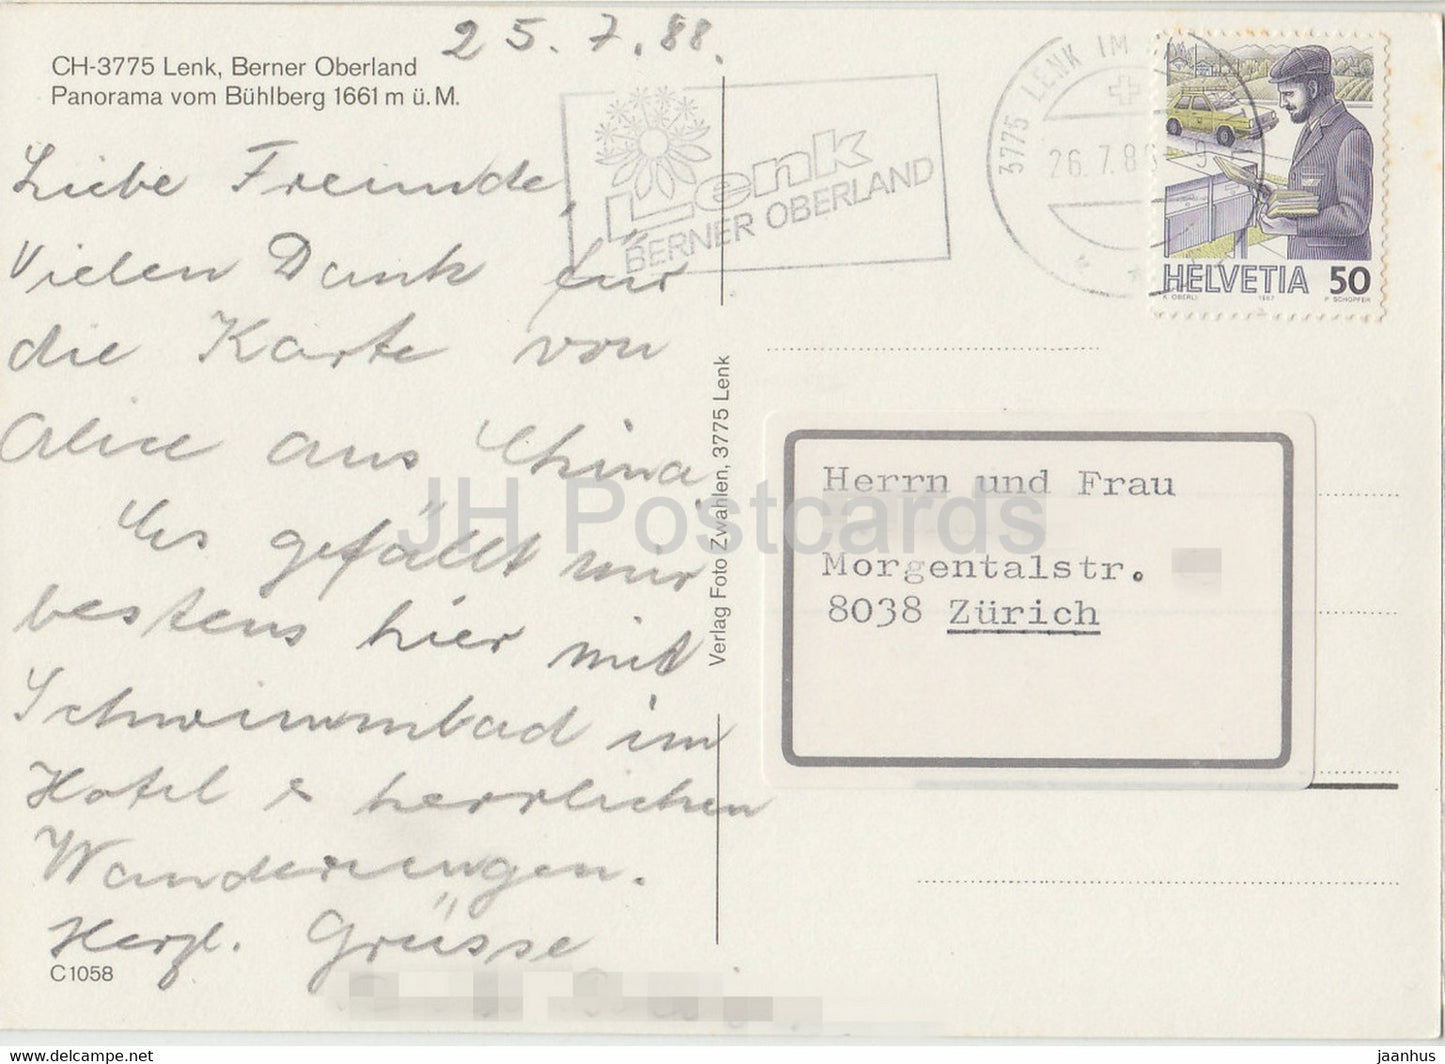 25.7.88.
CH-3775 Lenk, Berner Oberland
Panorama vom Bühlberg 1661 m ü.M.
Liebe Freunde,
Vielen Dank für
die Karte von
Alice aus China.
Es gefällt mir
bestens hier mit
Schwimmbad im
Hotel & herrlichen
Wanderungen.
Herzl. Grüsse
C1058
Verlag Foto Zwahlen, 3775 Lenk
Lenk
BERNER OBERLAND
3775 LENK IM
26.7.88
HELVETIA 50
K. OBERLI 1987 P. SCHOPFER
Herrn und Frau
Morgentalstr.
8038 Zürich
JH Postcards
www.delcampe.net
jaanhus